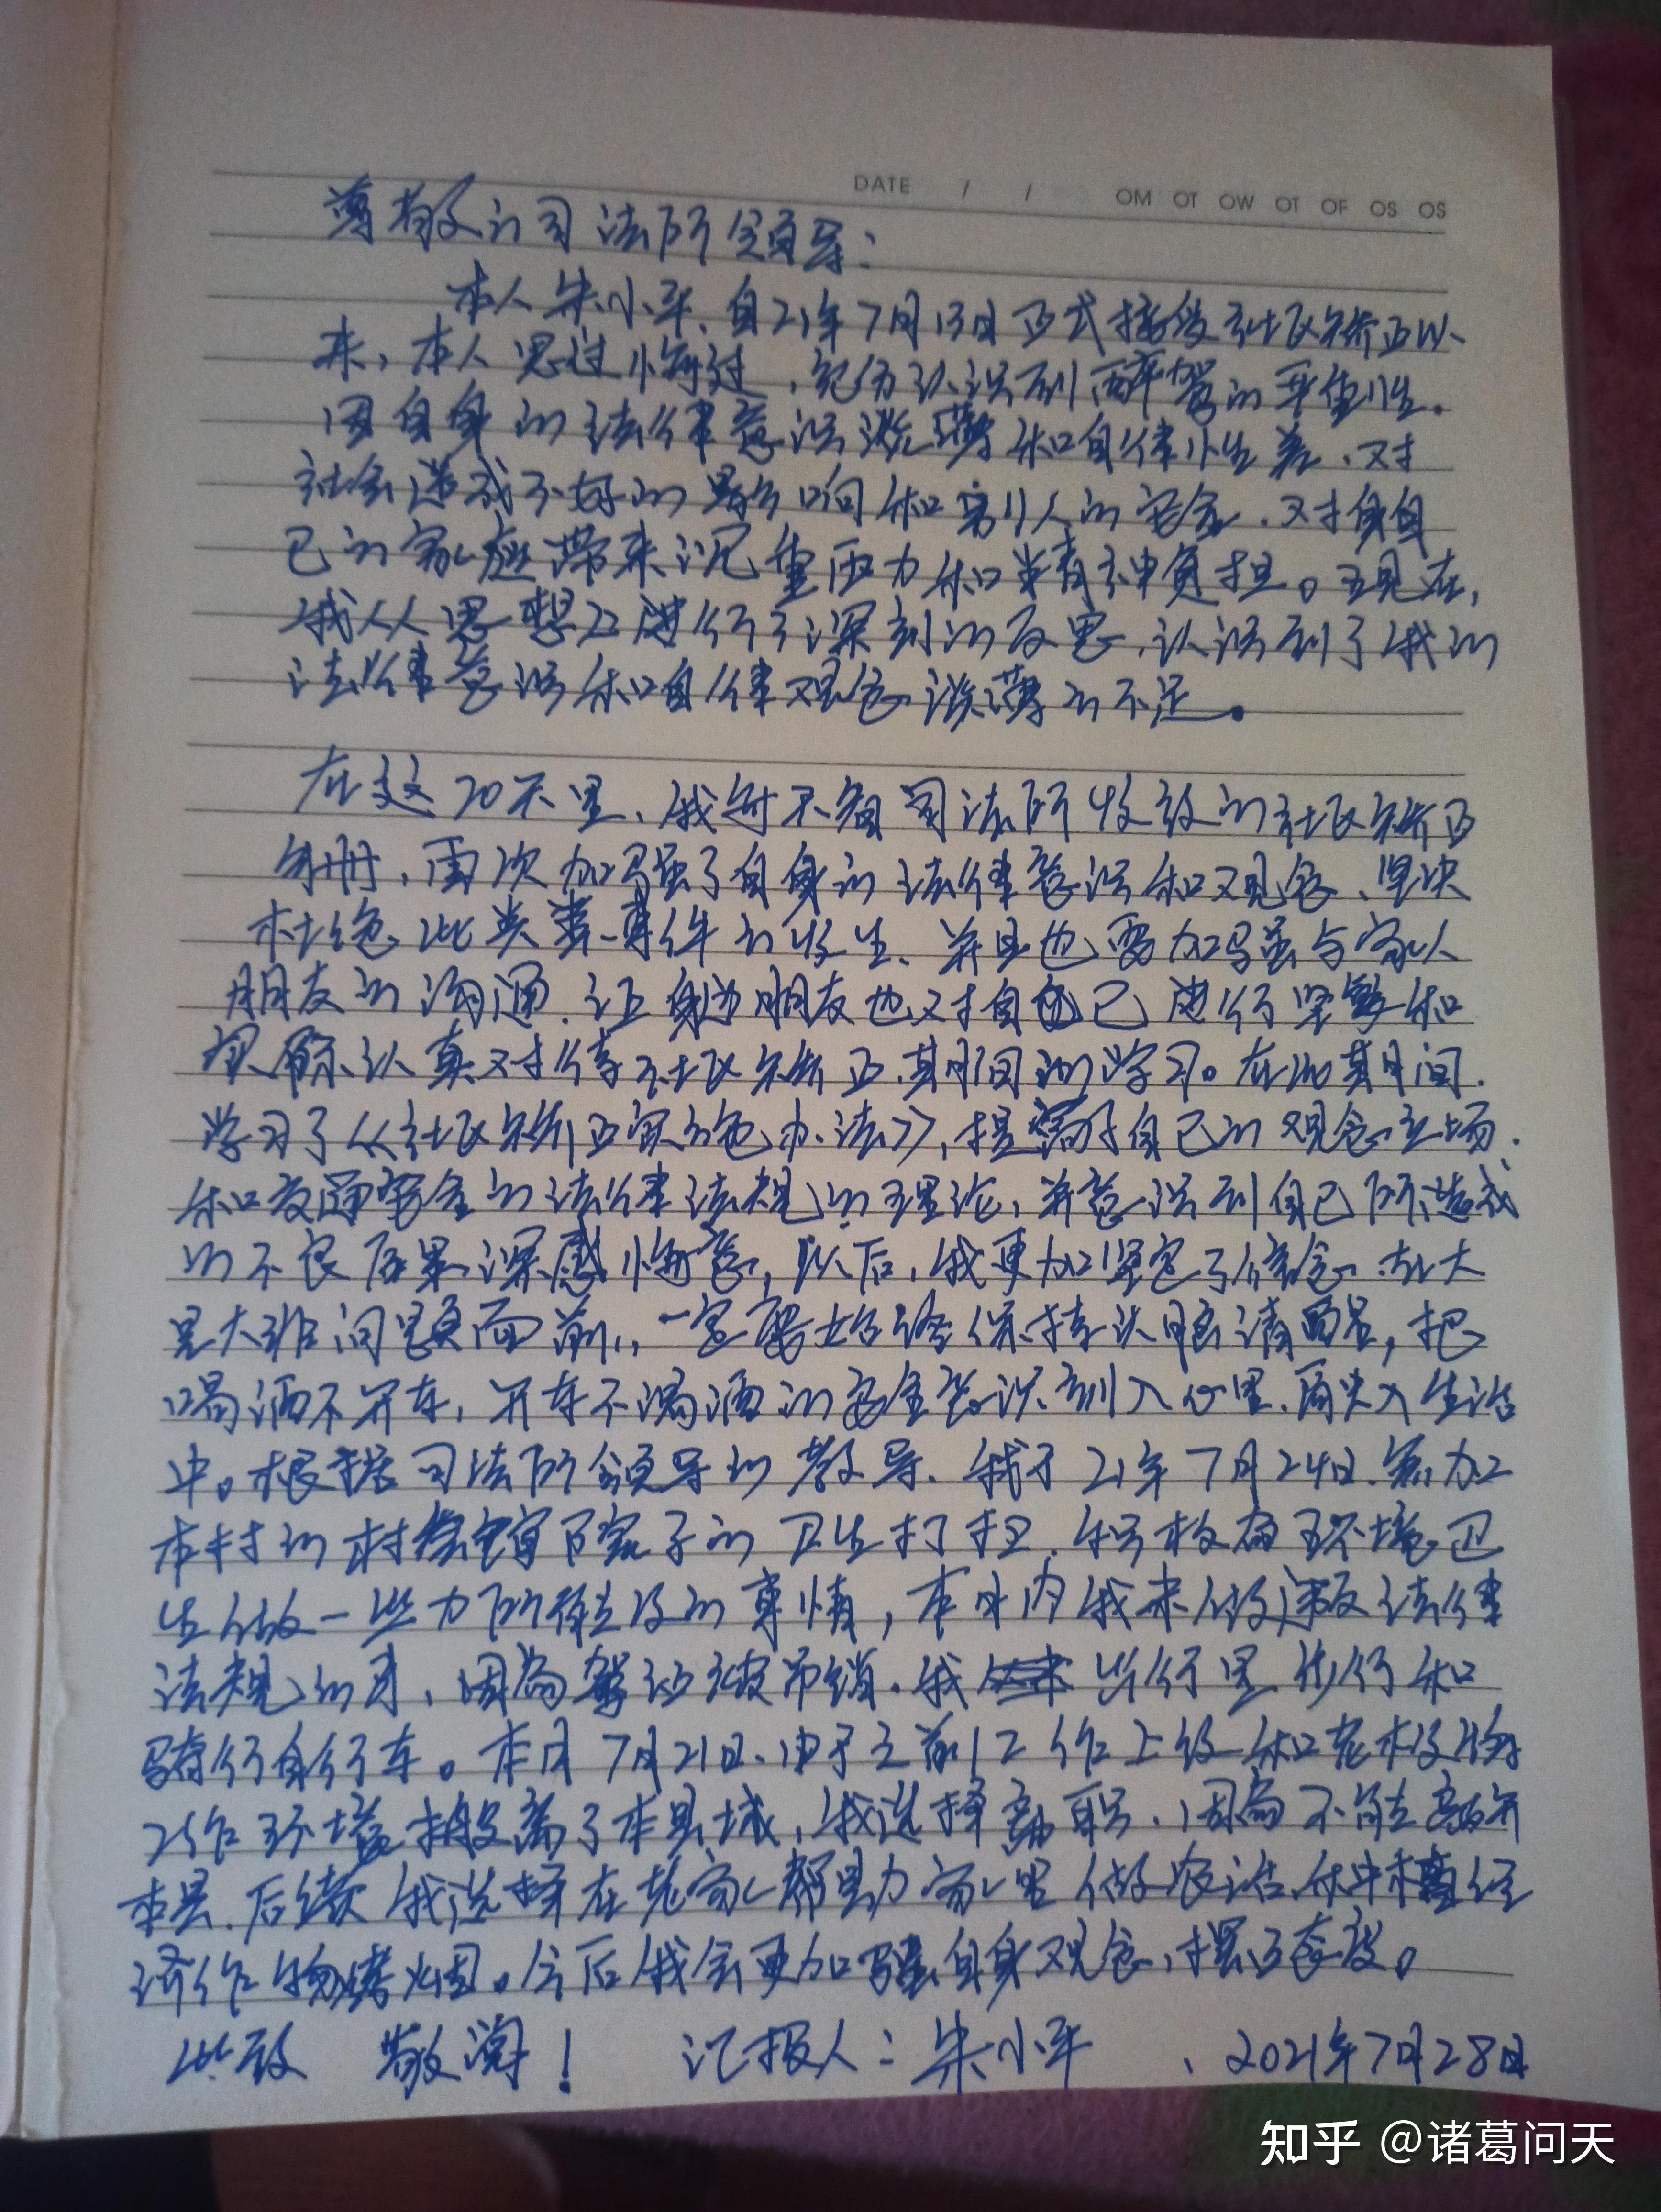 DATE / / OM OT OW OT OF OS OS
尊敬的司法所领导：
本人朱小平、自21年7月13日正式接受社区矫正以
来，本人思过悔过，充分认识到醉驾的严重性。
因自身的法律意识淡薄和自律性差、对
社会造成不好的影响和害别人的安全、对自
己的家庭带来沉重压力和精神负担。现在，
我从思想上进行了深刻的反思，认识到了我的
法律意识和自律观念淡薄的不足。
在这20天里、我每天看司法所发放的社区矫正
手册，再次加强了自身的法律意识和观念、坚决
杜绝此类事件的发生、并且也要加强与家人
朋友的沟通、让身边朋友也对自己进行坚督和
实际认真对待社区矫正期间的学习。在此期间
学习了《社区矫正实施办法》，提高了自己的观念立场、
和交通安全的法律法规的理论，并意识到自己所造成
的不良后果深感悔意，以后，我更加坚定了信念、在大
是大非问题面前，一定要始终保持头脑清醒，把
喝酒不开车，开车不喝酒的安全意识刻入心里、融入生活
中。根据司法所领导的教导、我于21年7月24日、参加
本村的村 院子的卫生打扫、积极为环境卫
生做一些力所能及的事情，本月内我未做违反法律
法规的事、因为驾证被吊销、我 出行是步行和
骑行自行车。本月7月21日、由于之前工作上级和老板将
工作环境搬离了本县城，我选择 职、因为不能离开
本县、后续我选择在老家帮助家里做农活、种植经
济作物烤烟。今后我会更加强自身观念，摆正态度。
此致 敬礼！ 汇报人：朱小平 、2021年7月28日
知乎 @诸葛问天